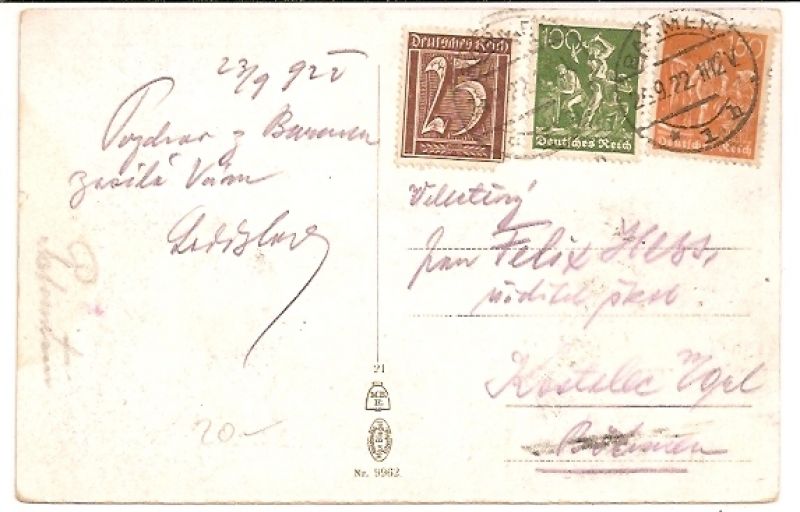 23/9 922
Pozdrav z Bremen
zasílá Vám
Ladislav
Deutsches Reich
25
100
Deutsches Reich
BREMEN
25.9.22. 11-12 V.
Velectěný
pan Felix Hess,
říditel škol
Kostelec n/Orl
Böhmen
21
M.B.
Nr. 9962
20-